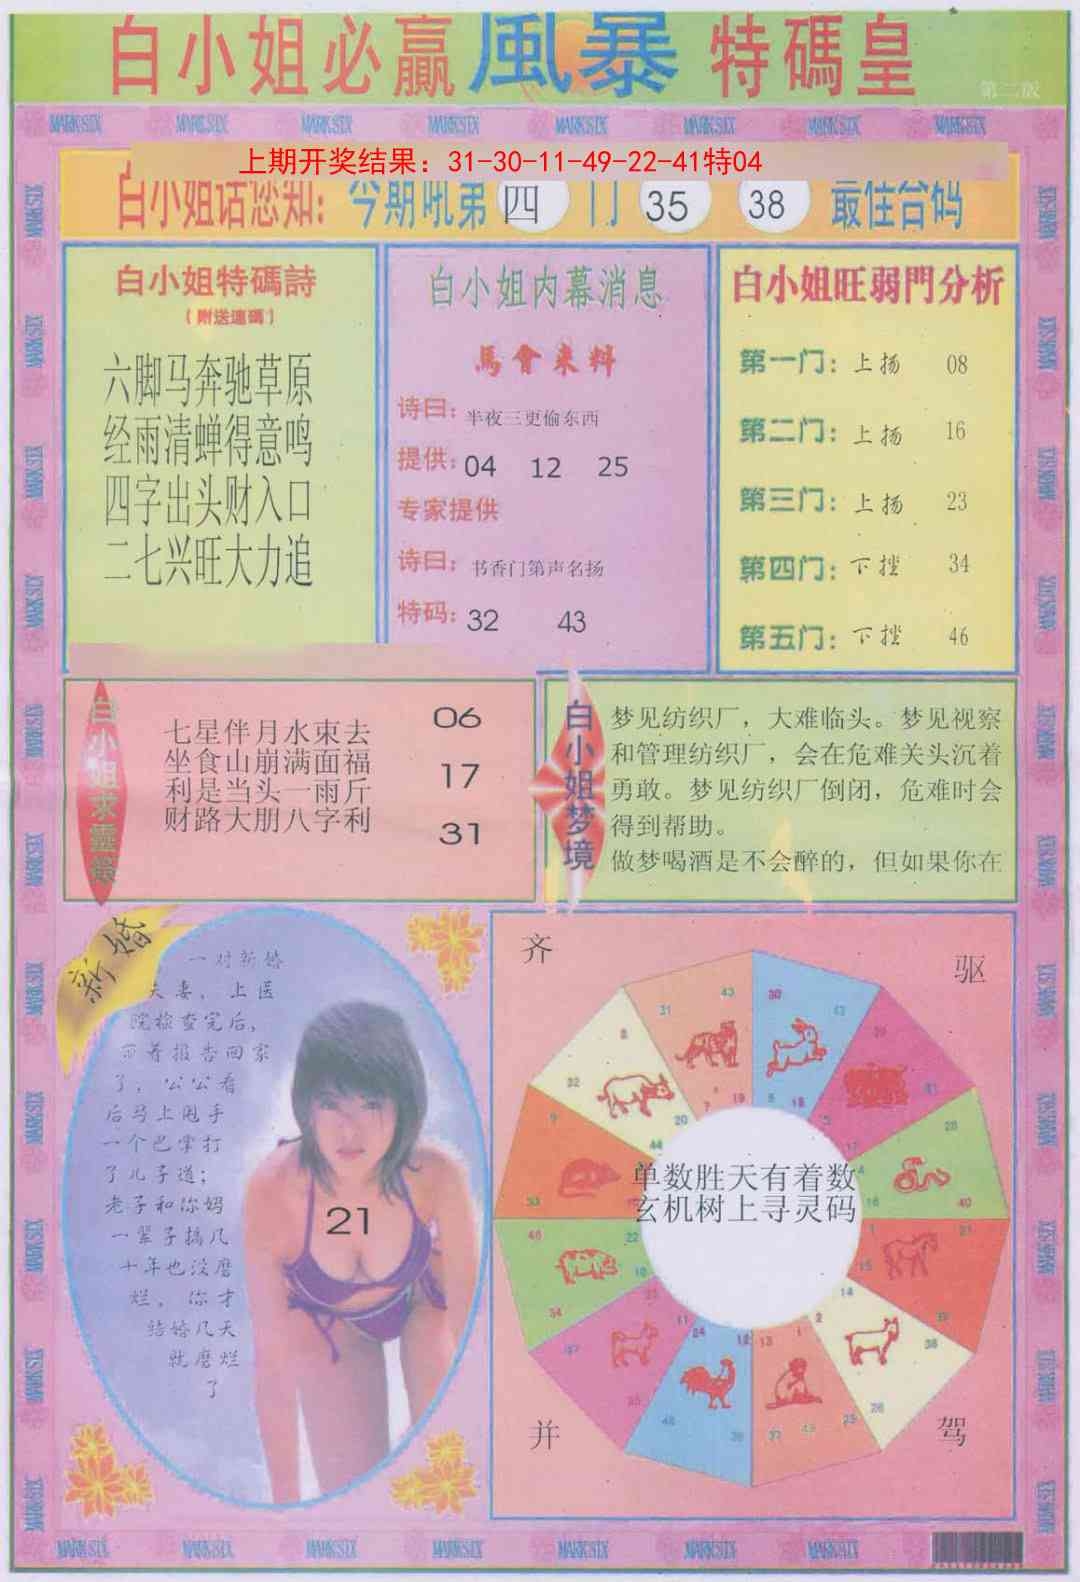 白小姐必赢風暴特碼皇
第二版
MARKSIX MARKSIX MARKSIX MARKSIX MARKSIX MARKSIX MARKSIX MARKSIX
上期开奖结果：31-30-11-49-22-41特04
白小姐话您知：今期吼第四门 35 38 最佳合码
白小姐特碼詩
（附送連碼）
六脚马奔驰草原
经雨清蝉得意鸣
四字出头财入口
二七兴旺大力追
白小姐内幕消息
馬會来料
诗曰：半夜三更偷东西
提供：04 12 25
专家提供
诗曰：书香门第声名扬
特码：32 43
白小姐旺弱門分析
第一门：上扬 08
第二门：上扬 16
第三门：上扬 23
第四门：下挫 34
第五门：下挫 46
白小姐求靈籤
七星伴月水東去
坐食山崩满面福
利是当头一雨斤
财路大朋八字利
06
17
31
白小姐梦境
梦见纺织厂，大难临头。梦见视察
和管理纺织厂，会在危难关头沉着
勇敢。梦见纺织厂倒闭，危难时会
得到帮助。
做梦喝酒是不会醉的，但如果你在
新婚
一对新婚
夫妻，上医
院检查完后，
而着报告回家
了，公公看
后马上甩手
一个巴掌打
了儿子道；
老子和你妈
一辈子搞几
十年也没磨
烂，你才
结婚几天
就磨烂
了
21
齐
驱
单数胜天有着数
玄机树上寻灵码
并
驾
MARKSIX MARKSIX MARKSIX MARKSIX MARKSIX MARKSIX MARKSIX